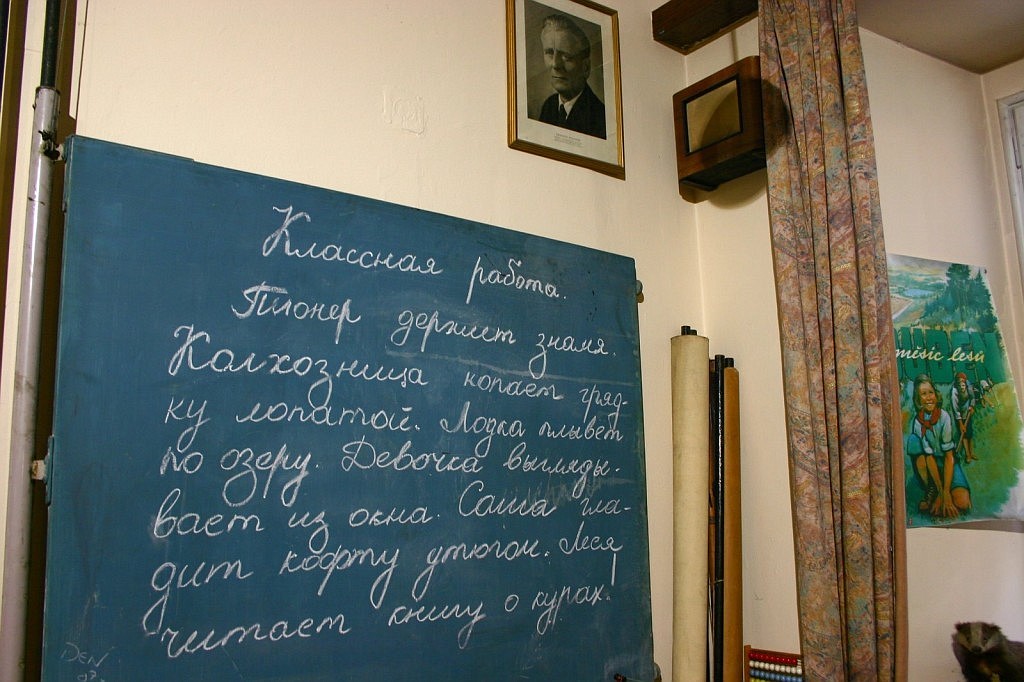 Классная работа.
Пионер держит знамя.
Колхозница копает гряд-
ку лопатой. Лодка плывёт
по озеру. Девочка выгляды-
вает из окна. Саша гла-
дит кофту утюгом. Леся
читает книгу о курах!
měsíc lesů
DEN